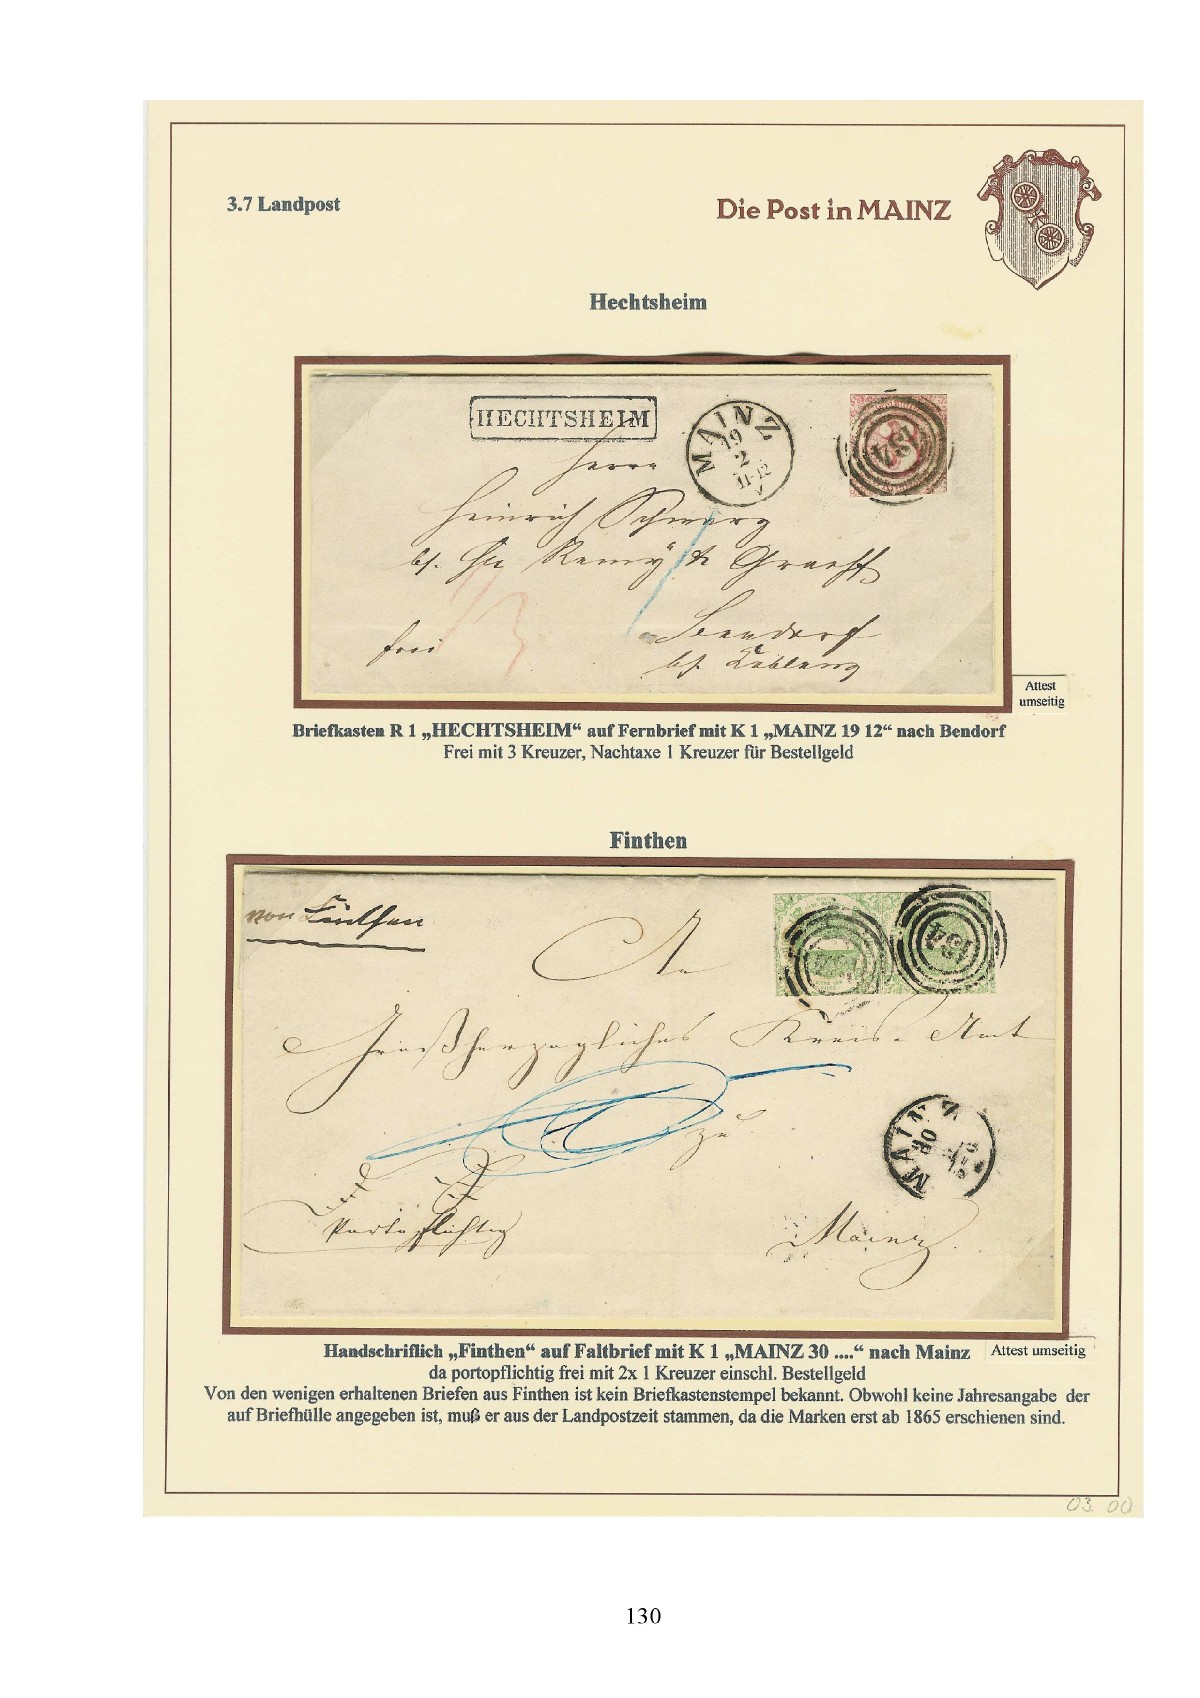 3.7 Landpost
Die Post in MAINZ
Hechtsheim
HECHTSHEIM
MAINZ
19
2
11-12
134
Herrn
Heinrich Schwarz
bs. Hn Remy & Graeff
frei
Bendorf
bs. Coblenz
Attest
umseitig
Briefkasten R 1 „HECHTSHEIM“ auf Fernbrief mit K 1 „MAINZ 19 12“ nach Bendorf
Frei mit 3 Kreuzer, Nachtaxe 1 Kreuzer für Bestellgeld
Finthen
von Finthen
134
An
Großherzogliches Kreis-Amt
zu
MAINZ
30
Portopflichtig
Mainz
Handschriflich „Finthen“ auf Faltbrief mit K 1 „MAINZ 30 ....“ nach Mainz
Attest umseitig
da portopflichtig frei mit 2x 1 Kreuzer einschl. Bestellgeld
Von den wenigen erhaltenen Briefen aus Finthen ist kein Briefkastenstempel bekannt. Obwohl keine Jahresangabe der
auf Briefhülle angegeben ist, muß er aus der Landpostzeit stammen, da die Marken erst ab 1865 erschienen sind.
03. 00
130